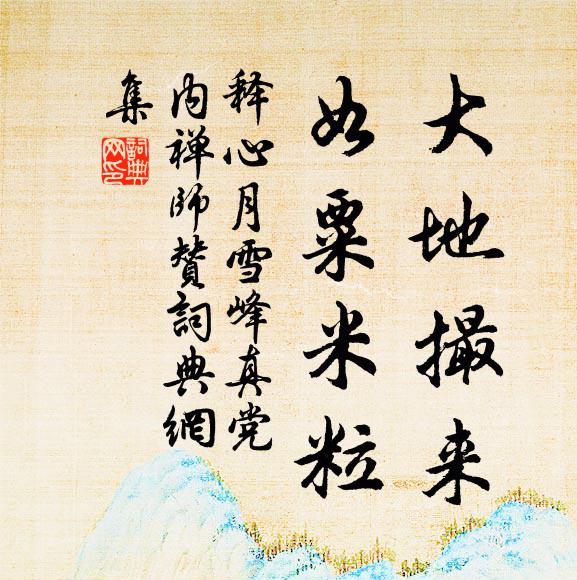 大地撮来
如粟米粒
释心月雪峰真党
内禅师赞詞典網
集
詞典網印